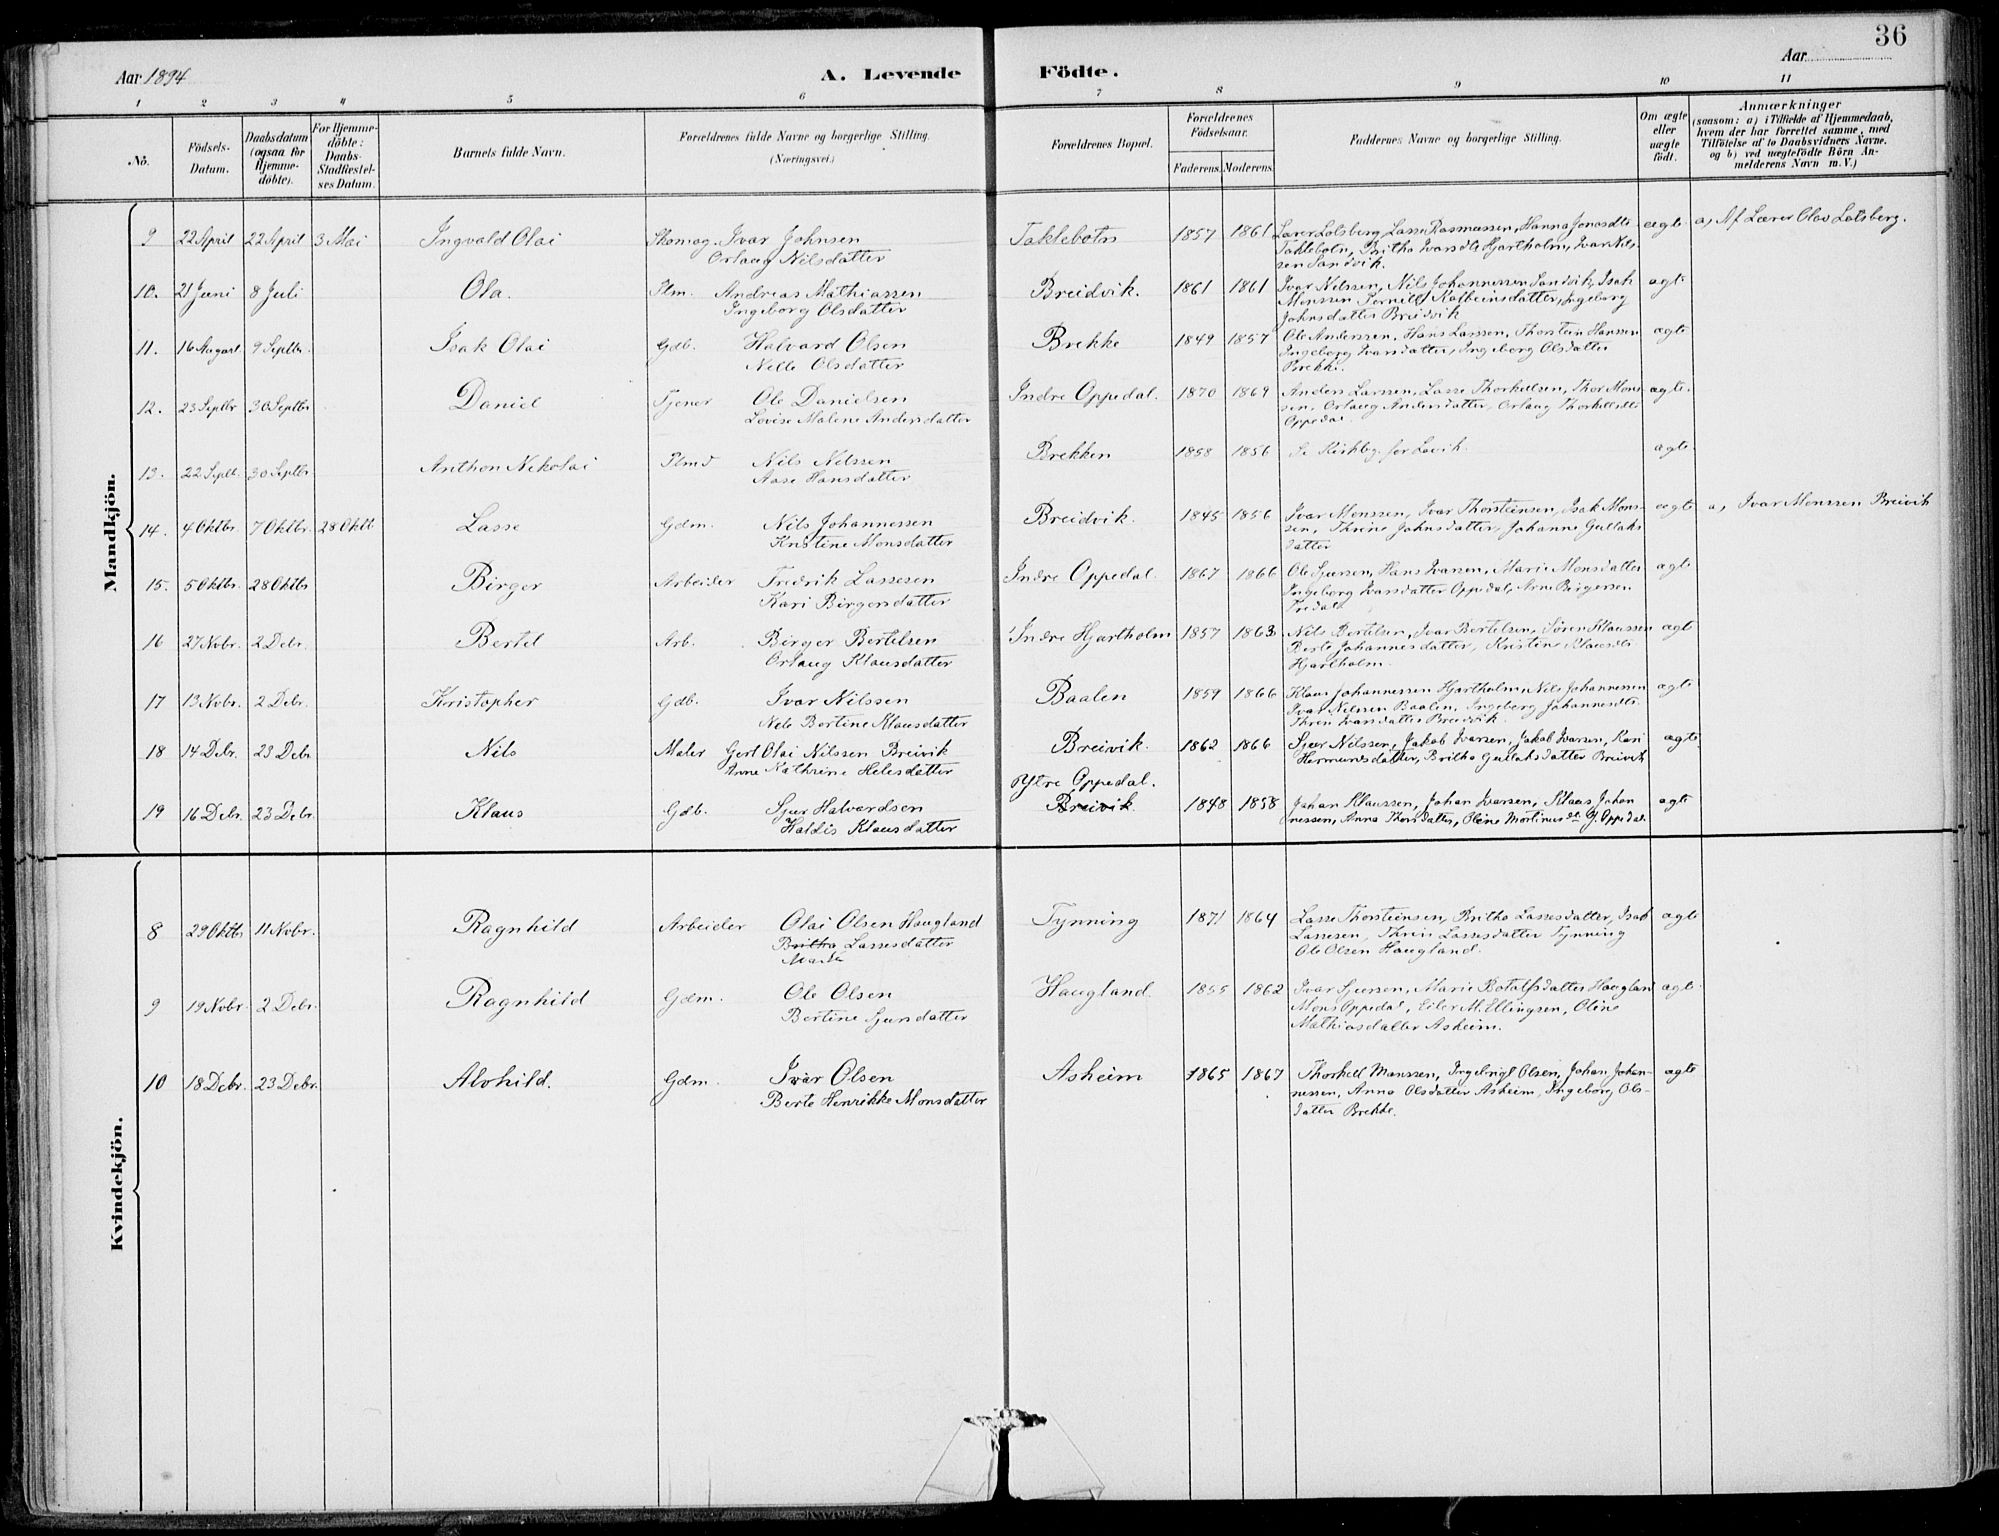 36
Aar 1894
A. Levende Födte.
Aar
1 2 3 4 5 6 7 8 9 10 11
No.
Födsels-Datum.
Daabsdatum (ogsaa for Hjemme-döbte).
For Hjemme-döbte: Daabs-Stadfæstel-ses Datum.
Barnets fulde Navn.
Forældrenes fulde Navne og borgerlige Stilling.
(Næringsvei.)
Forældrenes Bopæl.
Forældrenes Födselsaar.
Faderens. Moderens.
Faddernes Navne og borgerlige Stilling.
Om ægte eller uægte födt.
Anmærkninger
(saasom: a) i Tilfælde af Hjemmedaab,
hvem der har forrettet samme, med
Tilföielse af to Daabsvidners Navne.
og b) ved uægtefödte Börn An-
melderens Navn m. V.)
Mandkjön.
9 22 April 22 April 3 Mai Ingvald Olai Skomag. Ivar Johnsen Taklebotn 1857 1861 Lærer Lotsberg, Lasse Rasmussen, Hanna Jonasdtr ægte a, Af Lærer Olav Lotsberg.
Orlaug Nilsdatter Taklebotn, Britha Ivarsdtr Hjartholm, Ivar Nils-
sen Sandvik.
10. 21 Juni 8 Juli Ola. Plm. Andreas Mathiassen Breidvik. 1861 1861 Ivar Nilssen, Nils Johannessen Sandvik, Isak ægte
Ingeborg Olsdatter Monssen, Pernille Kolbeinsdatter, Ingeborg
Johnsdatter Breidvik
11. 16 August 9 Septbr. Isak Olai Gdb. Halvard Olsen Brekke 1849 1857 Ole Anderssen, Hans Larssen, Thorstein Hanssen ægte
Nille Olsdatter Ingeborg Ivarsdatter, Ingeborg Olsdatter
Brekke.
12. 23 Septbr 30 Septbr Daniel Tjener Ole Danielsen Indre Oppedal. 1870 1869 Anders Larssen, Lasse Thorkelsen, Thor Mons- ægte.
Lovise Malene Andersdatter sen, Orlaug Andersdatter, Orlaug Thorkelsdtr
Oppedal
13. 22 Septb. 30 Septbr Anthon Nikolai Plmd Nils Nilssen Brekken 1858 1856 Se Kirkbg. for Lavik. ægte
Aase Hansdatter
14. 4 Oktbr. 7 Oktbr. 28 Oktb Lasse Gdm. Nils Johannessen Breidvik. 1845 1856 Ivar Monssen, Ivar Thorsteinsen, Isak Mons- ægte a, Ivar Monssen Breivik
Kristine Monsdatter sen, Thrine Johnsdatter, Johanne Gullaks
datter
15. 5 Oktbr. 28 Oktbr Birger Arbeider Fredrik Lassesen Indre Oppedal. 1867 1866 Ole Sjursen, Hans Ivarsen, Marie Monsdatter ægte
Kari Birgersdatter Ingeborg Ivarsdatter Oppedal, Arne Birgersen
Tredal
16 27 Novbr. 2 Debr. Bertel Arb. Birger Bertelsen Indre Hjartholm 1857 1863 Nils Bertelsen, Ivar Bertelsen, Sören Klaussen ægte
Orlaug Klausdatter Berte Johannesdatter, Kristine Klausdtr
Hjartholm.
17 13 Novbr. 2 Debr. Kristopher Gdb. Ivar Nilssen Baalen 1859 1866 Klaus Johannessen Hjartholm, Nils Johannessen ægte
Nele Bertine Klausdatter Ivar Nilssen Baalen, Ingeborg Johannesdtr.
Thrine Ivarsdatter Breidvik.
18 14 Debr. 23 Debr Nils Maler Gert Olai Nilssen Breivik Breivik. 1862 1866 Sjur Nilssen, Jakob Ivarsen, Jakob Ivarsen, Kari ægte
Anne Kathrine Helesdatter Hermundsdatter, Britha Gullaksdatter Breivik
Ytre Oppedal.
19 16 Debr. 23 Debr Klaus Gdb. Sjur Halvardsen Breivik 1848 1858 Johan Klaussen, Johan Ivarsen, Klaus Johan ægte
Haldis Klausdatter nessen, Anna Thorsdatter, Oline Mortinusdtr. Y. Oppedal
Kvindekjön.
8 29 Oktbr 11 Novbr. Ragnhild Arbeider Olai Olsen Haugland Tynning 1871 1864 Lasse Thorsteinsen, Britha Lassesdatter, Isak ægte
Britha Lassesdatter Lassesen, Thrine Lassesdatter Tynning
Ole Olsen Haugland.
9 19 Novbr. 2 Debr. Ragnhild Gdm. Ole Olsen Haugland. 1855 1862 Ivar Sjursen, Marie Botolfsdatter Haugland ægte.
Bertine Sjursdatter Mons Oppedal, Eiler M. Ellingsen, Oline
Mathiasdatter Asheim.
10 18 Debr. 23 Debr. Alvhild. Gdm. Ivar Olsen Asheim 1865 1867 Thorkel Manssen, Ingebrigt Olsen, Johan Johan- ægte
Berte Henrikke Monsdatter nessen, Anna Olsdatter Asheim, Ingeborg Ols-
datter Brekke.